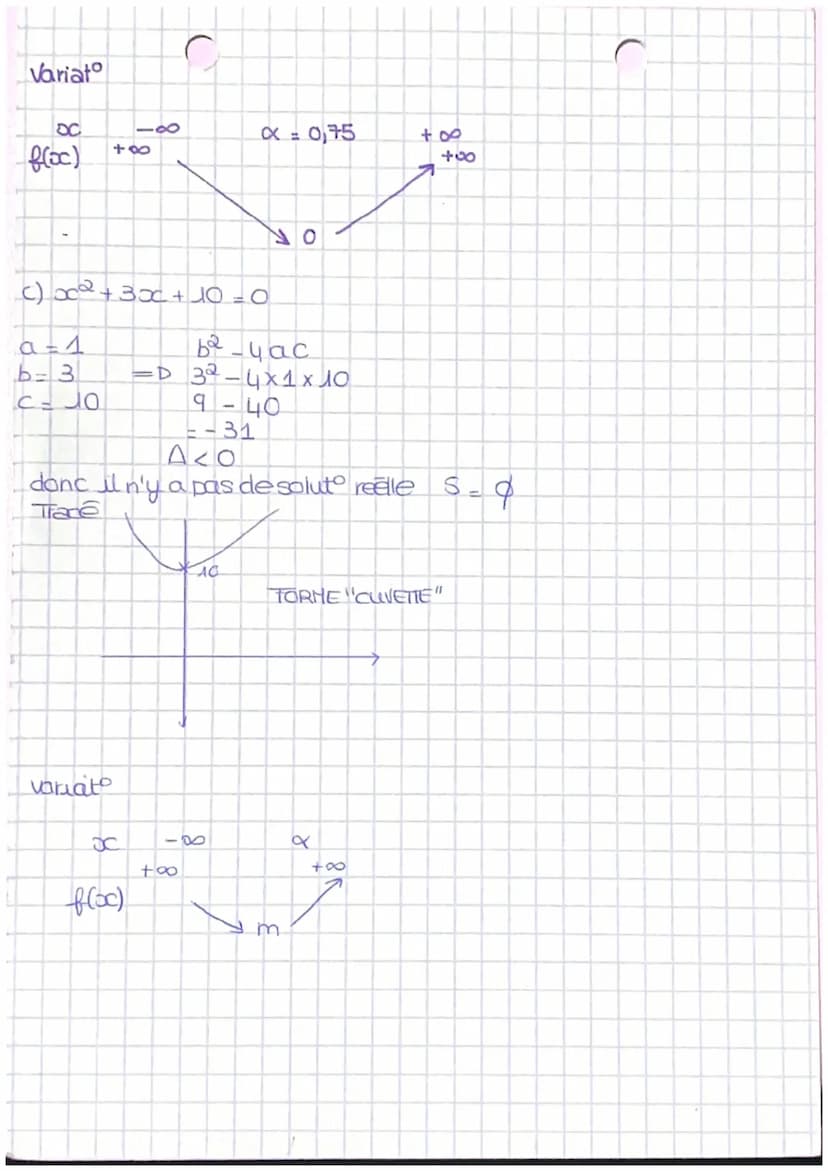 Variat°
x -∞ α = 0,75 +∞
f(x) +∞ +∞
0
c) x² + 3x + 10 = 0
a = 1 b² - 4ac
b = 3 => 3² - 4 x 1 x 10
c = 10 9 - 40
= - 31
Δ < 0
donc il n'y a pas de solut° reélle S = ∅
Tracé
10
FORME "CUVETTE"
variat°
x -∞ α
+∞ +∞
f(x)
m